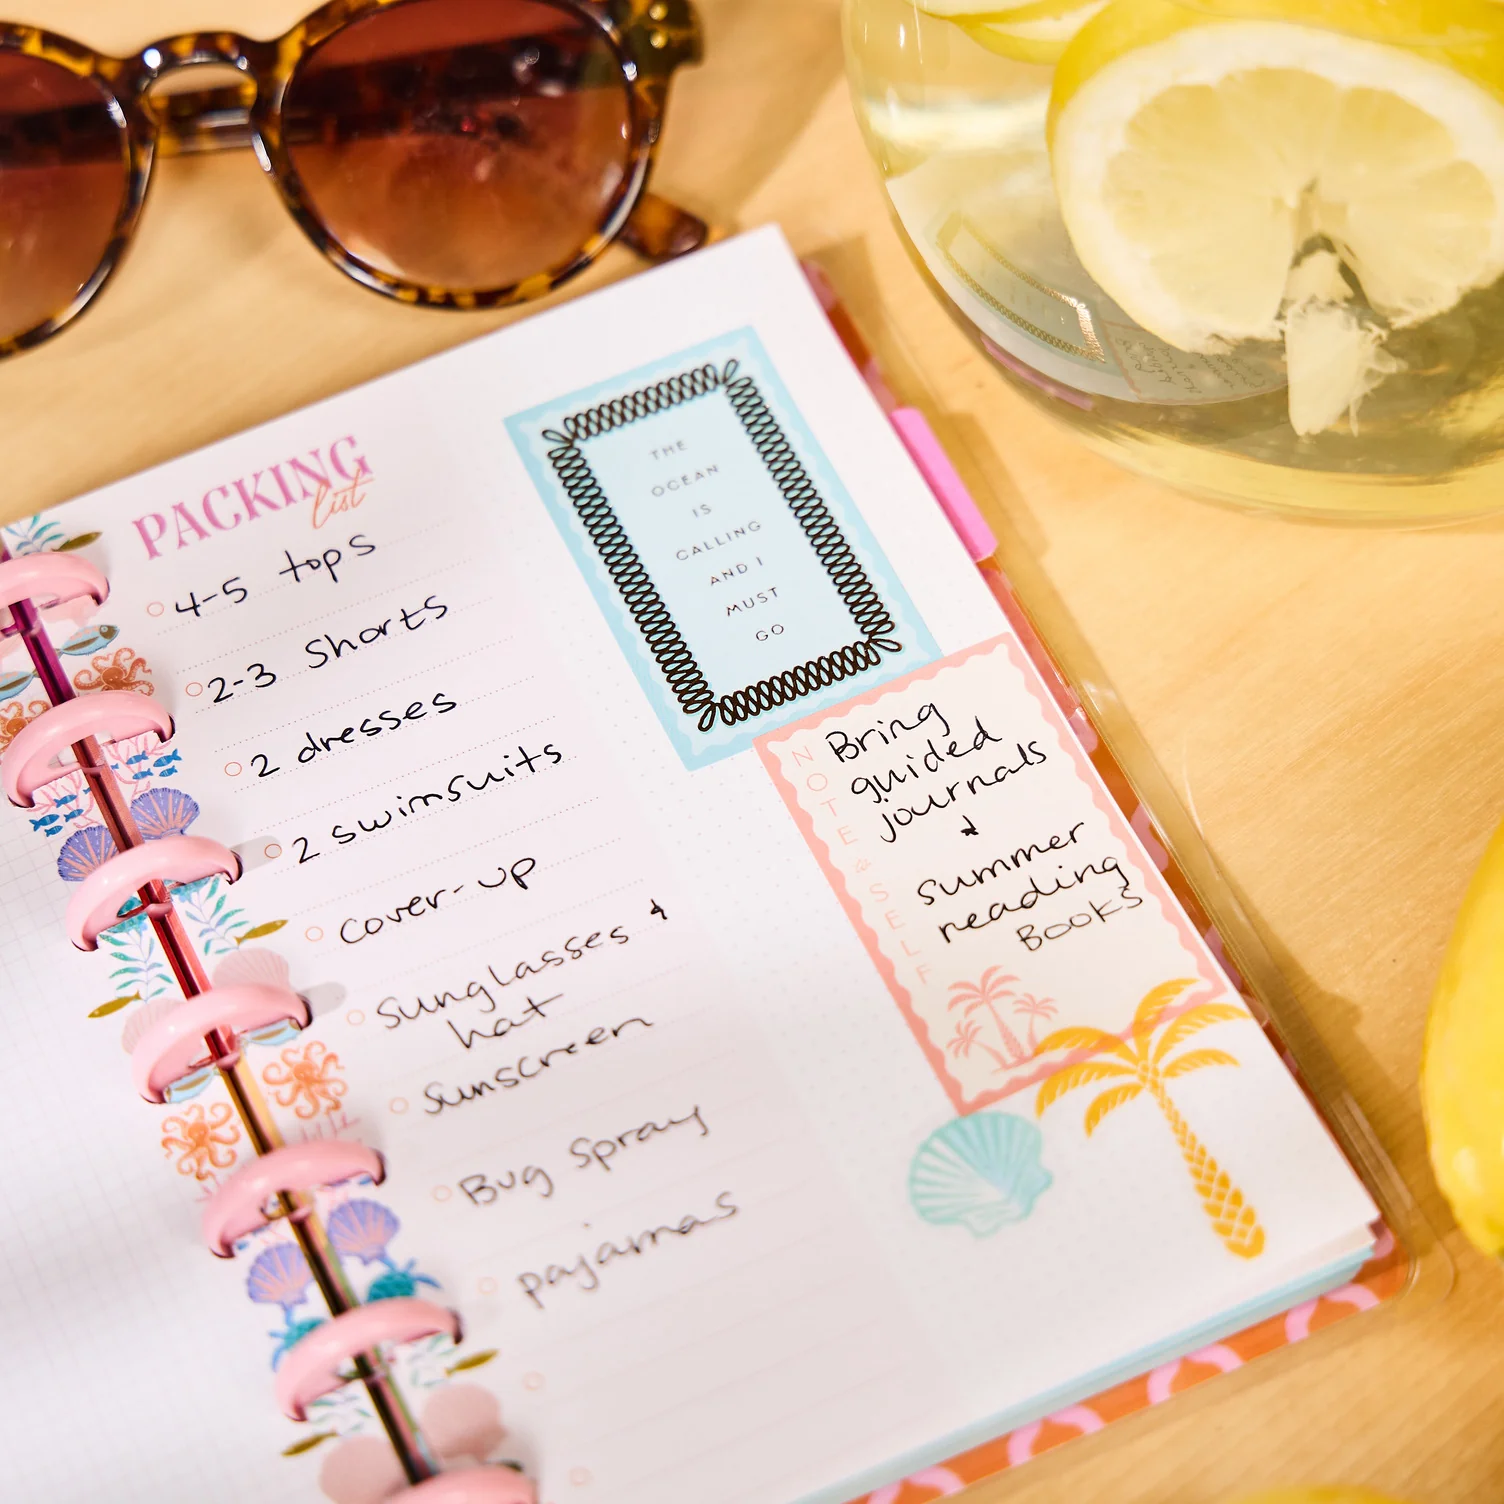 PACKING
list
4-5 tops
2-3 Shorts
2 dresses
2 swimsuits
cover-up
sunglasses &
hat
sunscreen
Bug Spray
pajamas
THE
OCEAN
IS
CALLING
AND I
MUST
GO
NOTE to SELF
Bring
guided
journals
&
summer
reading
Books